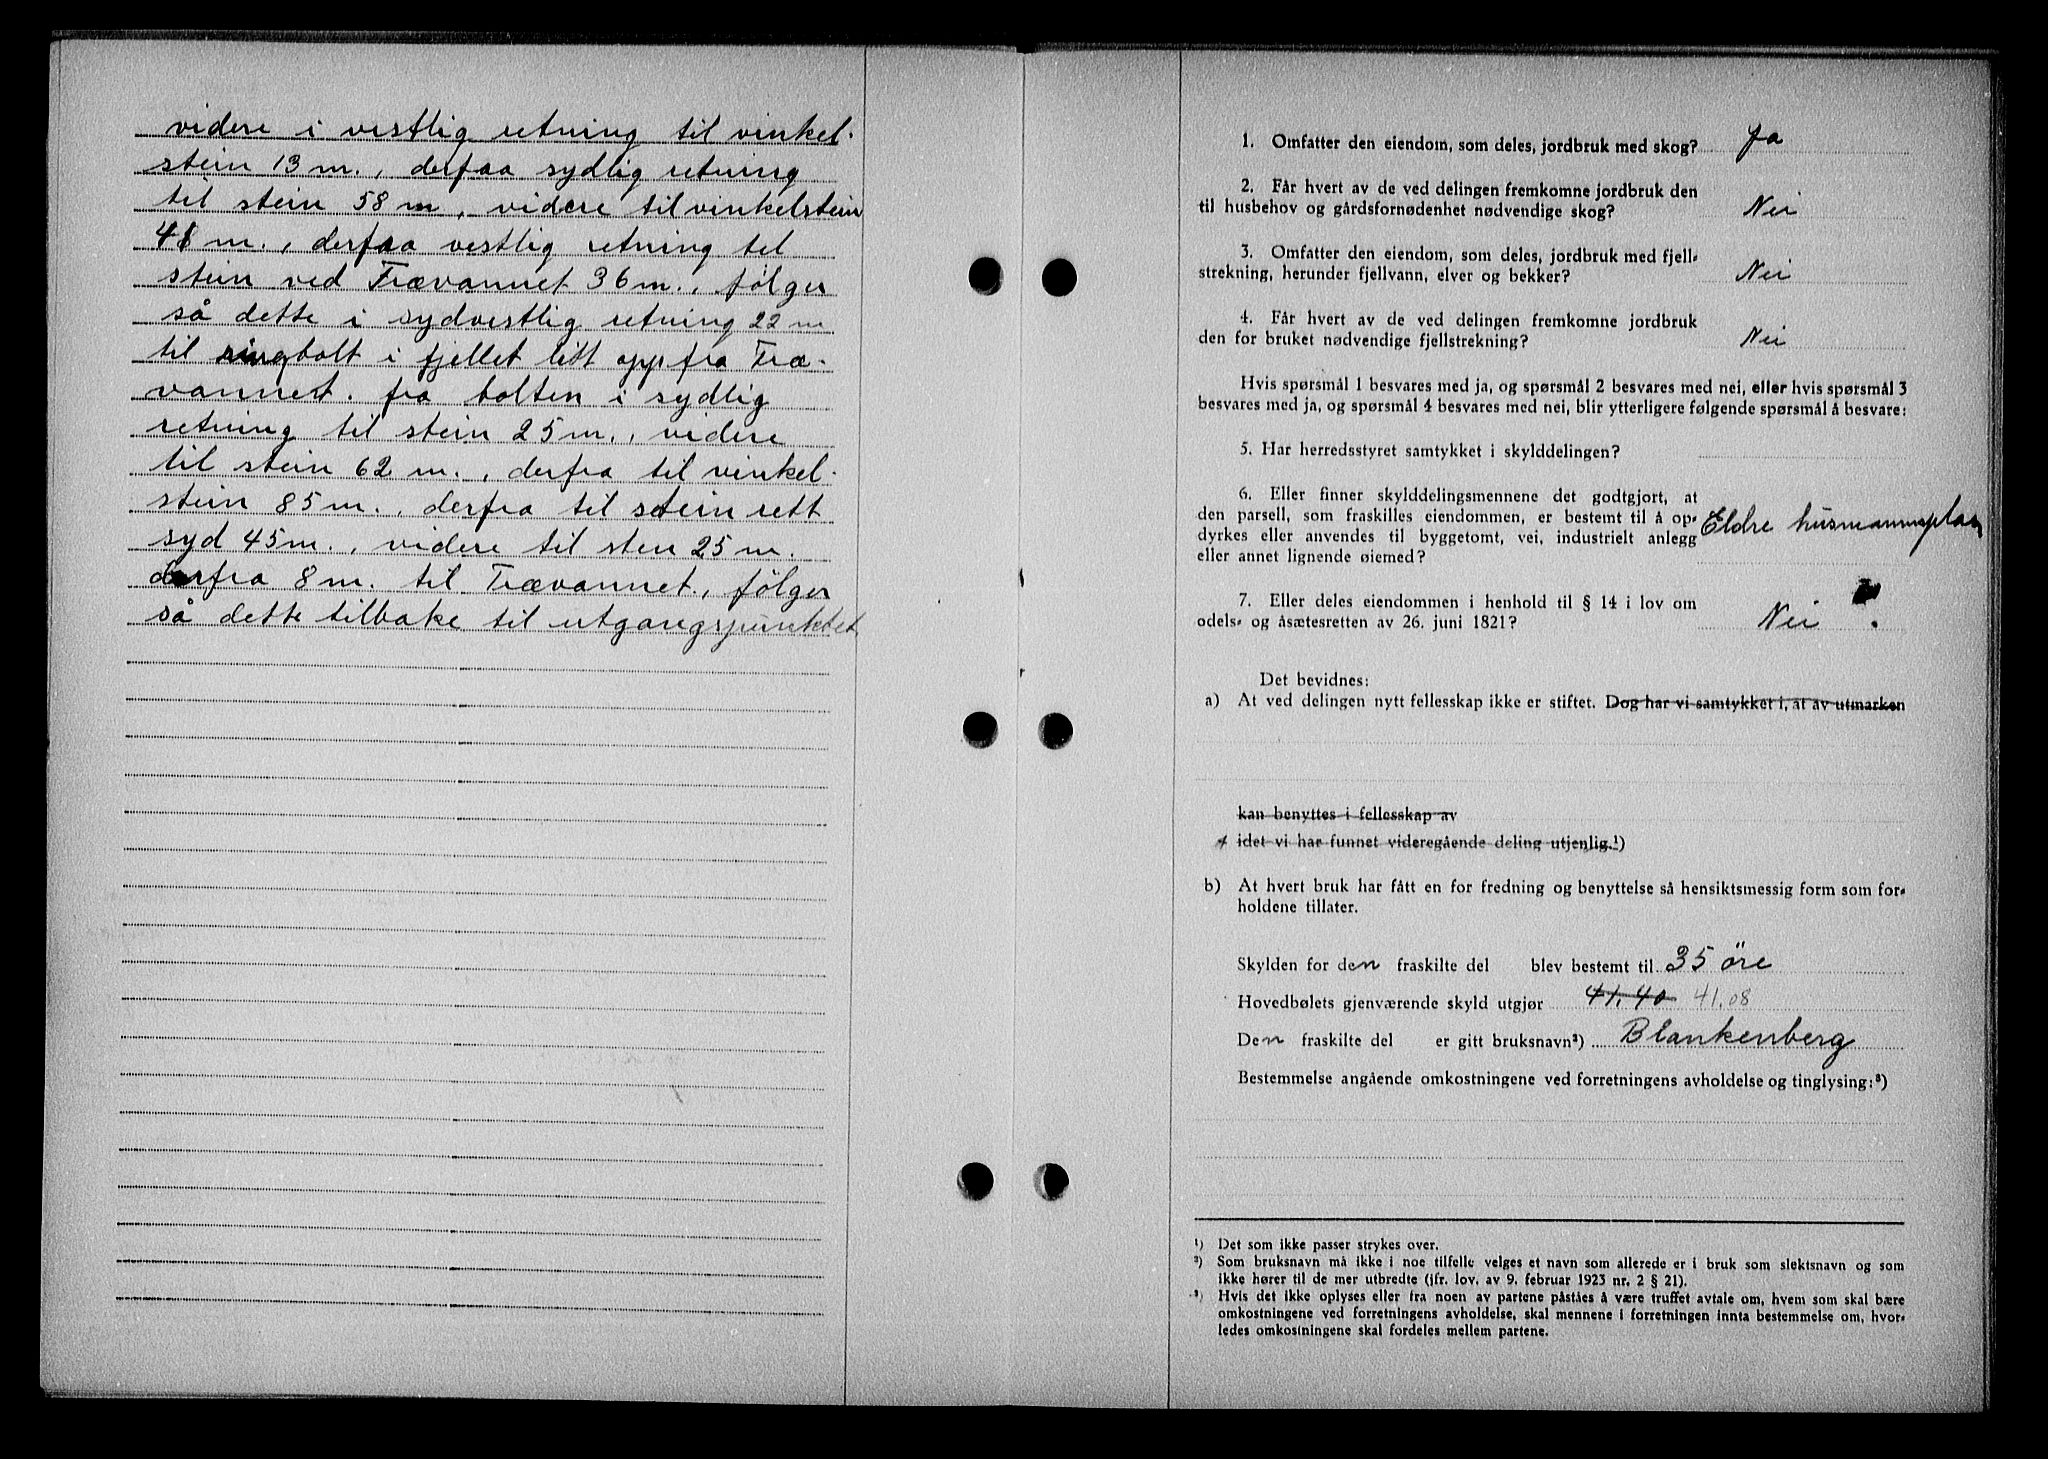 videre i vestlig retning til vinkel-
stein 13 m., derfaa sydlig retning
til stein 58 m, videre til vinkelstein
48 m., derfaa vestlig retning til
stein ved Trævannet 36 m., følger
så dette i sydvestlig retning 22 m
til ringbolt i fjellet litt opp fra Træ-
vannet. fra bolten i sydlig
retning til stein 25 m., videre
til stein 62 m., derfra til vinkel-
stein 85 m., derfra til stein rett
syd 45 m., videre til sten 25 m.
derfra 8 m. til Trævannet, følger
så dette tilbake til utgangspunktet
1. Omfatter den eiendom, som deles, jordbruk med skog? Ja
2. Får hvert av de ved delingen fremkomne jordbruk den
til husbehov og gårdsfornødenhet nødvendige skog? Nei
3. Omfatter den eiendom, som deles, jordbruk med fjell-
strekning, herunder fjellvann, elver og bekker? Nei
4. Får hvert av de ved delingen fremkomne jordbruk
den for bruket nødvendige fjellstrekning? Nei
Hvis spørsmål 1 besvares med ja, og spørsmål 2 besvares med nei, eller hvis spørsmål 3
besvares med ja, og spørsmål 4 besvares med nei, blir ytterligere følgende spørsmål å besvare:
5. Har herredsstyret samtykket i skylddelingen?
6. Eller finner skylddelingsmennene det godtgjort, at
den parsell, som fraskilles eiendommen, er bestemt til å op-
dyrkes eller anvendes til byggetomt, vei, industrielt anlegg Eldre husmannsplass
eller annet lignende øiemed?
7. Eller deles eiendommen i henhold til § 14 i lov om
odels- og åsætesretten av 26. juni 1821? Nei .
Det bevidnes:
a) At ved delingen nytt fellesskap ikke er stiftet. Dog har vi samtykket i, at av utmarken
kan benyttes i fellesskap av
idet vi har funnet videregående deling utjenlig.¹)
b) At hvert bruk har fått en for fredning og benyttelse så hensiktsmessig form som for-
holdene tillater.
Skylden for den fraskilte del blev bestemt til 35 öre
Hovedbølets gjenværende skyld utgjør 41.40 41.08
Den fraskilte del er gitt bruksnavn²) Blankenberg
Bestemmelse angående omkostningene ved forretningens avholdelse og tinglysing:³)
¹) Det som ikke passer strykes over.
²) Som bruksnavn må ikke i noe tilfelle velges et navn som allerede er i bruk som slektsnavn og som
ikke hører til de mer utbredte (jfr. lov. av 9. februar 1923 nr. 2 § 21).
³) Hvis det ikke oplyses eller fra noen av partene påstås å være truffet avtale om, hvem som skal bære
omkostningene ved forretningens avholdelse, skal mennene i forretningen innta bestemmelse om, hvor-
ledes omkostningene skal fordeles mellem partene.